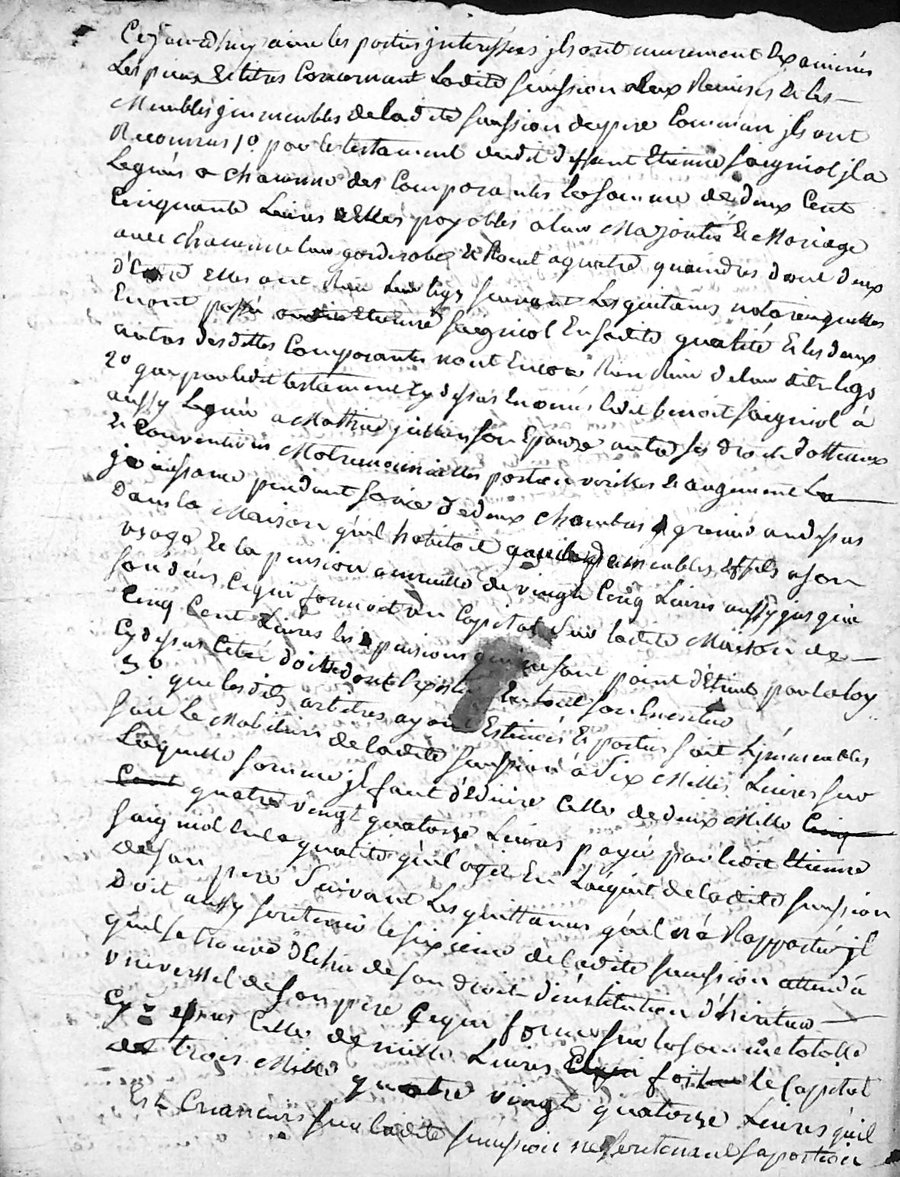 Ce jourd'huy aiant les parties interessées jls ont murement Examinés
Les pieces Et titres Concernant Ladite Succession a Eux Remises Et les
Meubles jmmeubles de ladite Succession du père Commun jls ont
Reconnus 1º par le testament dudit deffunt Etienne Saigniol jl a
Legués a chacune des Composantes la somme de deux Cent
Cinquante Livres a Elles payables a leur Majorité Et Mariage
avec chacune leur garderobe Et quatre dont deux
d'Entre Elles ont leur legs suivant Les quitances notariés quelles
En ont passé Saigniol En sadite qualité Et les deux
autres desdittes Composantes nont Encore Rien de leur dit Legs
2º que par ledit testament Cy dessus Enoncés ledit benoit Saigniol à
aussy Legués a son Epouse outre ses droits dotteaux
Et Conventions Matrimonialles portion viriles Et augement La
jouissance pendant sa vie de deux chambres Et grenié audessus
Dans la Maison qu'il habitoit meubles Effets a son
usage Et la pension annuelle de vingt Cinq Livres aussy jusqu'a
son décés, Ce qui formoit un Capital Sur ladite Maison de
Cinq Cent Livres les pensions qui ne sont point d'Etints par la loy
Cy dessus Citée doivent
3º que lesdits arbitres ayant Estimés Et portés soit Ljmmeubles
soit Le Mobiliers de ladite Succession à Six Milles Livres sur
Laquelle somme jl faut déduire Celle de deux Mille Cinq
Cent quatre vingt quatorze Livres payée par ledit Etienne
Saigniol En la qualité qu'il agét En L'acquit de ladite Succession
de son père Suivant Les quittances qu'il a Rapportés jl
Doit aussy le sixième de ladite Succession attendu
qu'il se trouve de son droit d'institution d'héritier
universsel de son père Ce qui forme sur la somme totalle
Cy dessus Celle de mille Livres le Capital
de trois Mille quatre vingt quatorze Livres qu'il
Est Créanciers sur ladite Succession sa portion